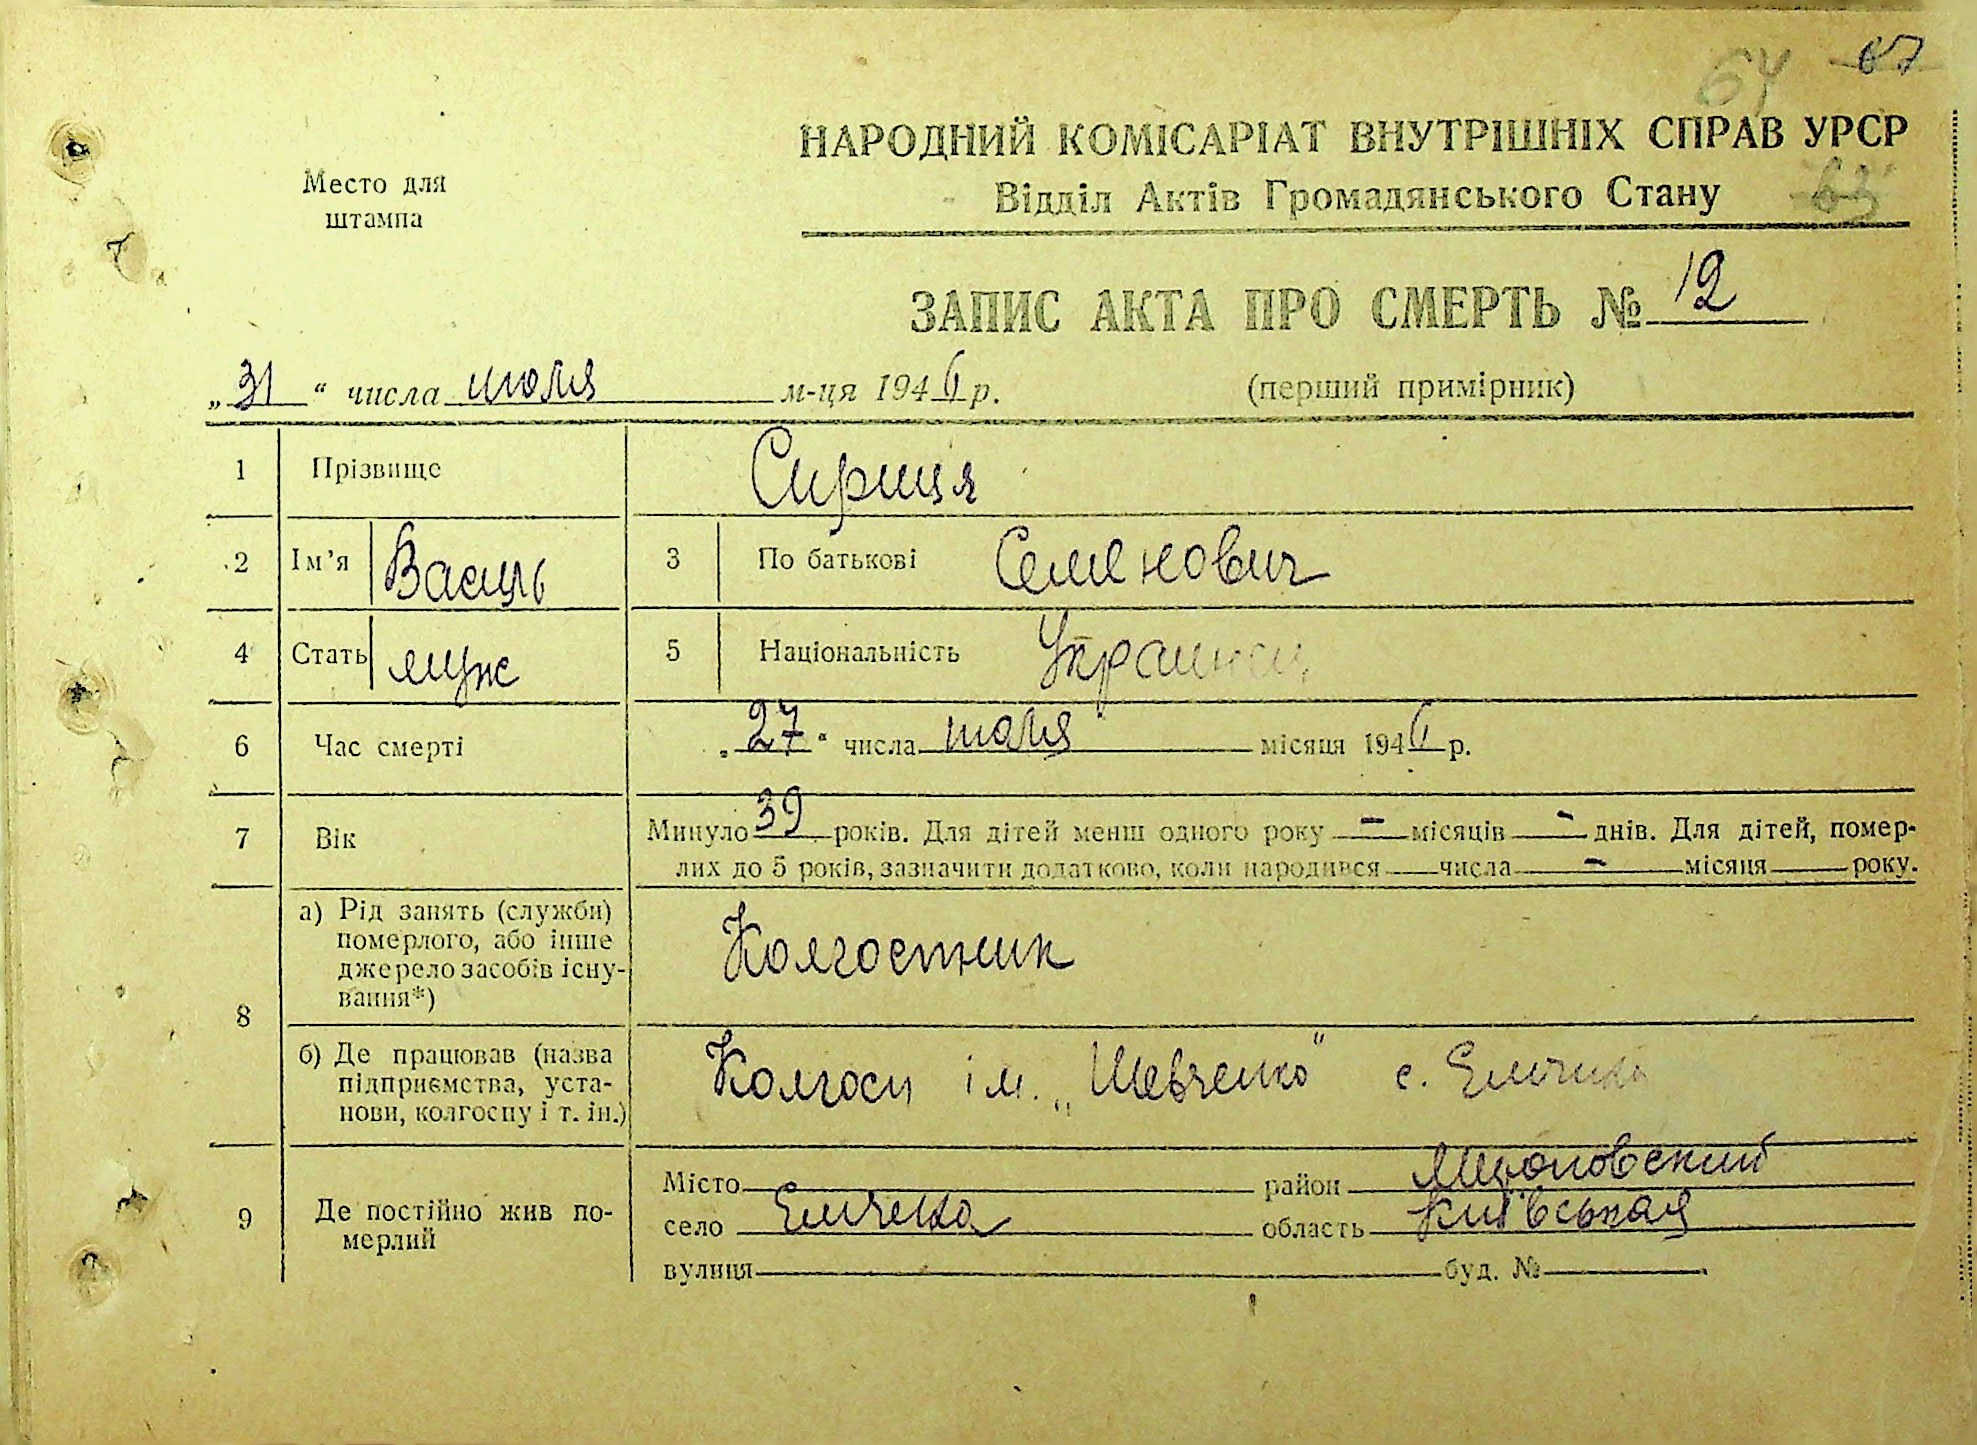 64 67
НАРОДНИЙ КОМІСАРІАТ ВНУТРІШНІХ СПРАВ УРСР
Место для
штампа
Відділ Актів Громадянського Стану
63
ЗАПИС АКТА ПРО СМЕРТЬ № 12
„31“ числа июля м-ця 1946 р. (перший примірник)
1 Прізвище Сириця
2 Ім’я Василь 3 По батькові Семенович
4 Стать муж 5 Національність Украинец
6 Час смерті „27“ числа июля місяця 1946 р.
7 Вік Минуло 39 років. Для дітей менш одного року - місяців - днів. Для дітей, помер-
лих до 5 років, зазначити додатково, коли народився числа - місяця року.
8 а) Рід занять (служби)
померлого, або інше
джерело засобів існу-
вання*)
Колгостник
б) Де працював (назва
підприємства, уста-
нови, колгоспу і т. ін.)
Колгосп ім. „Шевченко“ с. Емчиха
9 Де постійно жив по-
мерлий
Місто район Мироновский
село Емчиха область Київськая
вулиця буд. №